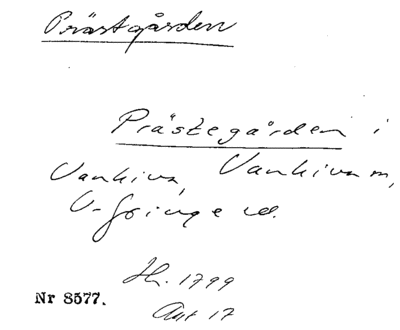 Prästgården
Prästegården i
Vankiva, Vankiva m,
V-Göinge
Nr 8577.
1799
Akt 17